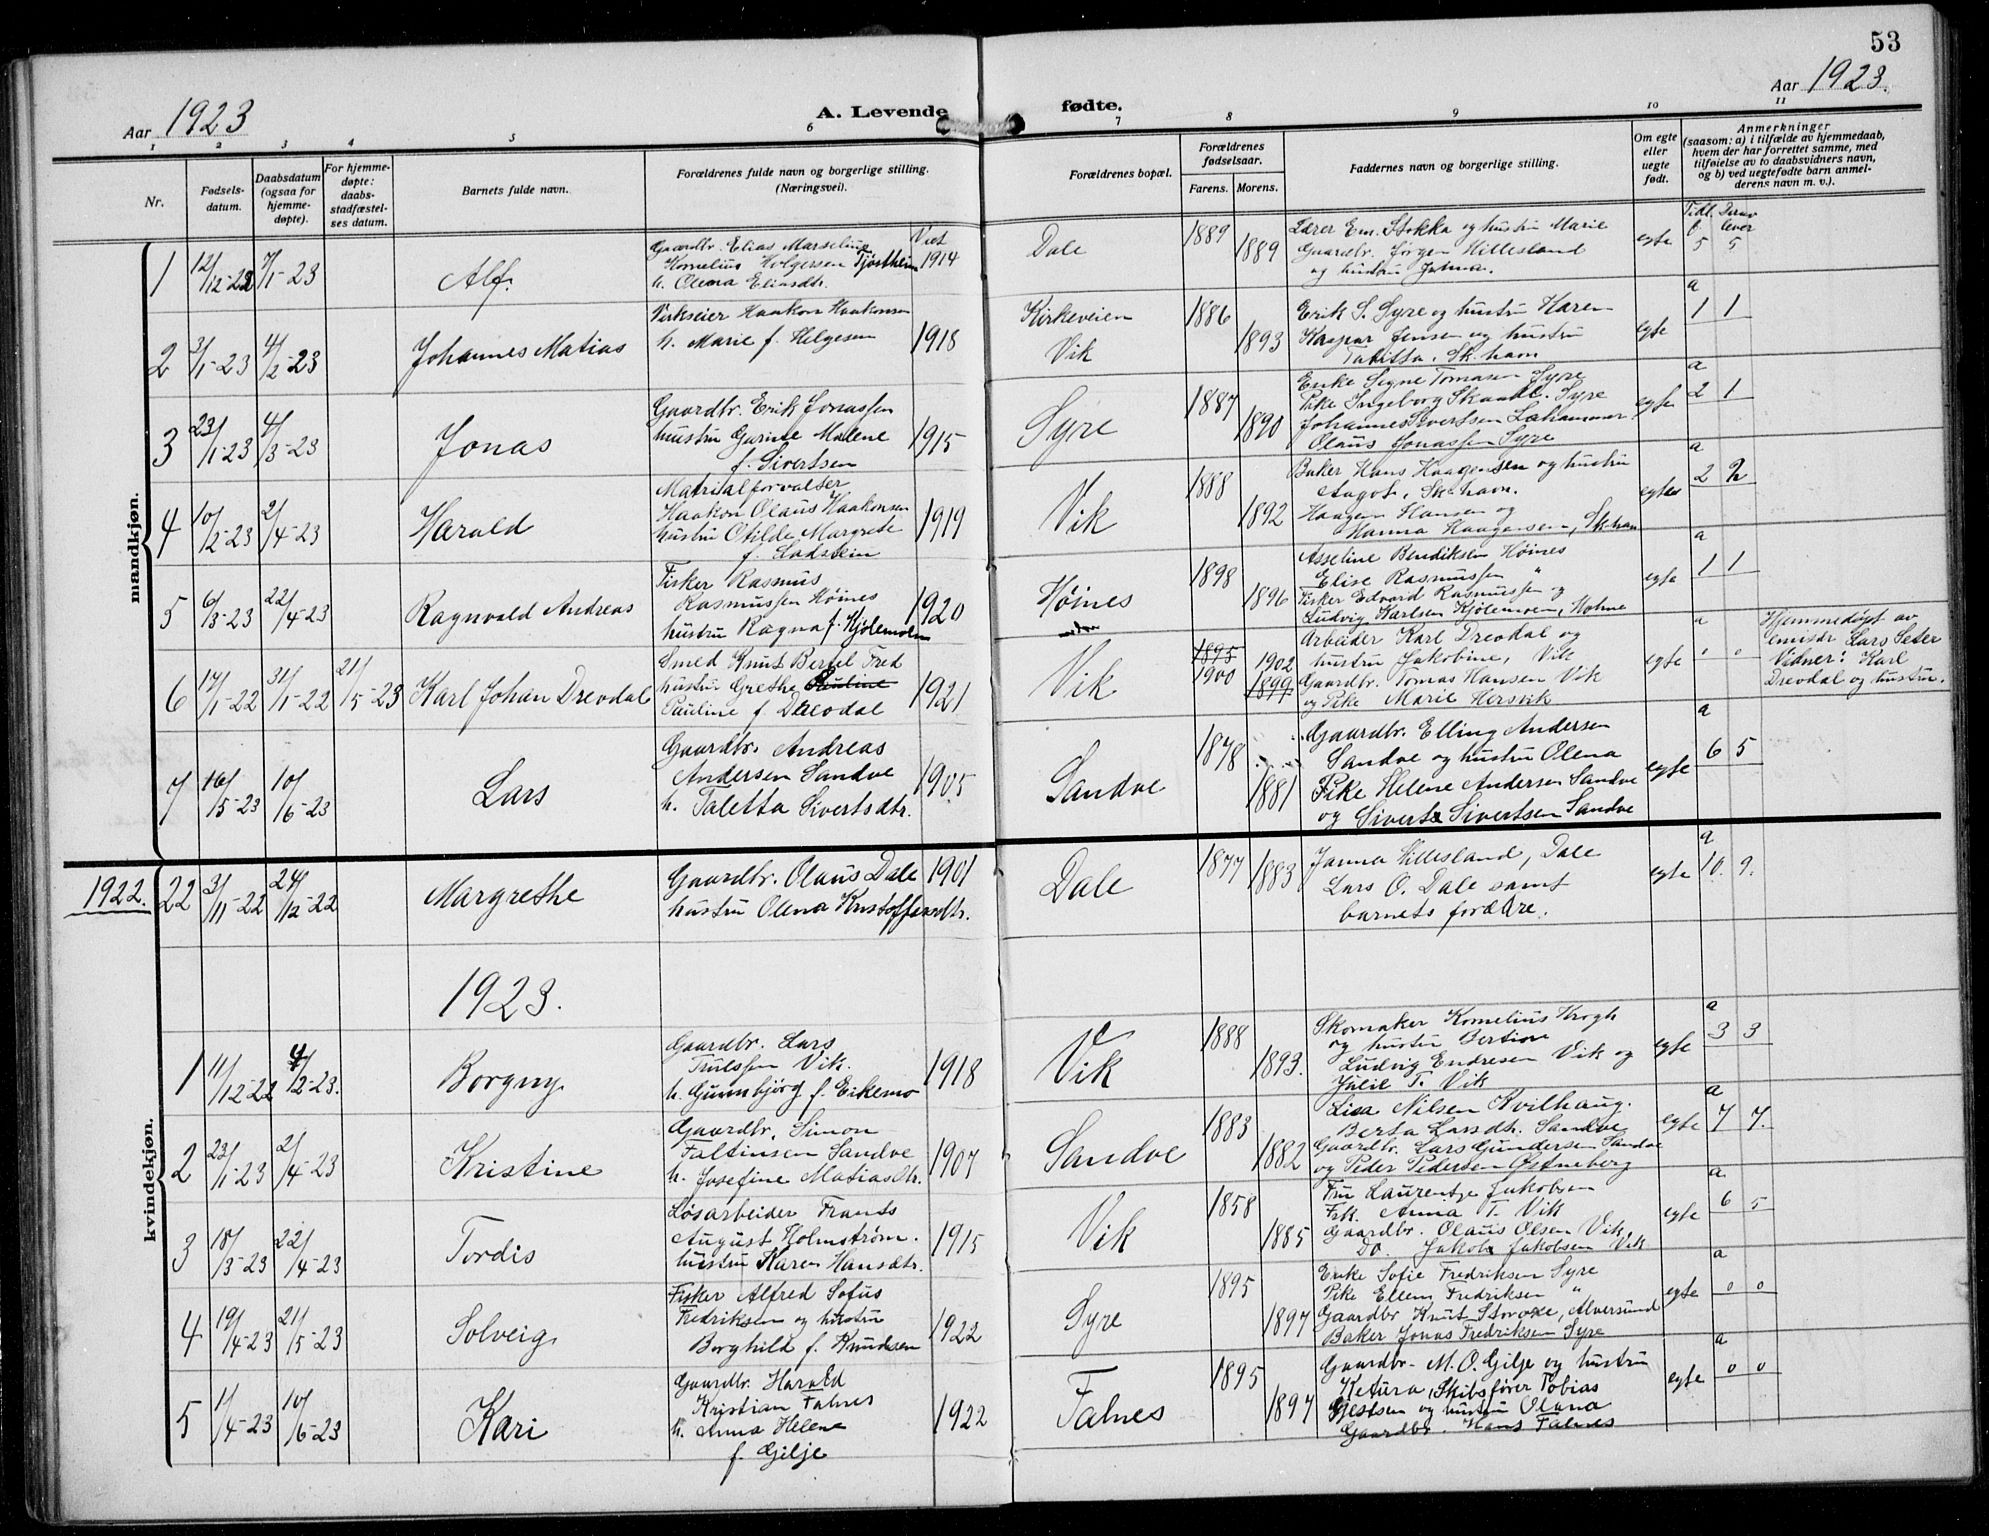 53
Aar 1923
A. Levende fødte.
Aar 1923.
1 2 3 4 5 6 7 8 9 10 11
Nr.
Fødsels-
datum.
Daabsdatum
(ogsaa for
hjemme-
døpte).
For hjemme-
døpte:
daabs-
stadfæstel-
ses datum.
Barnets fulde navn.
Forældrenes fulde navn og borgerlige stilling.
(Næringsvei).
Forældrenes bopæl.
Forældrenes
fødselsaar.
Farens. Morens.
Faddernes navn og borgerlige stilling.
Om egte
eller
uegte
født.
Anmerkninger
(saasom: a) i tilfælde av hjemmedaab,
hvem der har forrettet samme, med
tilføielse av to daabsvidners navn,
og b) ved uegtefødte barn anmel-
derens navn m. v.).
Tidl. f. Derav lever
mandkjøn.
1 12/12-22 7/1-23 Alf.
Gaardbr. Elias Marselius
Kornelius Holgersen Tjøstheim
h. Olena Eliasdtr.
Viet 1914
Dale 1889 1889
Lærer Em. Stokka og hustru Marie
Gaardbr. Jørgen Hillesland
og hustru
egte 5 5
2 3/1-23 4/2-23 Johannes Matias
Virkseier Haakon Haakonsen
h. Marie f. Helgesen
1918
Kirkeveien
Vik
1886 1893
Erik S. Syre og hustru Karen
Kaspar Jensen og hustru
Tabitta, Sk.havn
egte a 1 1
3 23/1-23 4/3-23 Jonas
Gaardbr. Erik Jonassen
hustru Gurine Malene
f. Sivertsen
1915
Syre 1887 1890
Enke Signe Tomasen Syre
Pike Ingeborg Skaadl. Syre
Johannes Sivertsen Lahammer
Olaus Jonassen Syre
egte a 2 1
4 10/2-23 2/4-23 Harald
Matrialforvalter
Haakon Olaus Haakonsen
hustru Otilde Margrete
f. Lodstein
1919
Vik 1888 1892
Baker Hans Haagensen og hustru
Aagot, Sk.havn.
Haagen Hansen og
Hanna Haagensen, Sk.havn
egte a 2 2
5 6/3-23 22/4-23 Ragnvald Andreas
Fisker Rasmus
Rasmussen Høines
hustru Ragna f. Kjølemoen
1920
Høines
1898 1896
Asseline Bendiksen Høines
Elise Rasmussen "
Fisker Edvard Rasmussen og
Ludvig Karlsen Kjølemoen, Holme
egte a 1 1
6 17/1-22 31/1-22 21/5-23 Karl Johan Drevdal
Smed Knut Bertel Fred
hustru Grethe Pauline
Pauline f. Drevdal
1921
Vik 1895 1900 1902 1899
Arbeider Karl Drevdal og
hustru Jakobine, Vik
Gaardbr. Tomas Hansen Vik
og Pike Marie Hersvik
egte a 0 0
Hjemmedøpt av
emisær Lars Seter
Vidner: Karl
Drevdal og hustru.
7 16/5-23 10/6-23 Lars
Gaardbr. Andreas
Andersen Sandve
h. Taletta Sivertsdtr.
1905
Sandve 1878 1881
Gaardbr. Elling Andersen
Sandve og hustru Olena
Pike Helene Andersen Sandve
og Sivert Sivertsen Sandve
egte a 6 5
1922. 22 3/11-22 24/12-22 Margrethe
Gaardbr. Olaus Dale
hustru Olena Kristoffersdtr.
1901
Dale 1877 1883
Janna Hillesland, Dale
Lars O. Dale samt
barnets forældre.
egte a 10. 9.
1923.
kvindekjøn.
1 11/12-22 4/2-23. Borgny
Gaardbr. Lars
Trulssen Vik.
h. Gunnbjørg f. Eikemo
1918
Vik 1888 1893.
Skomaker Kornelius Krogh
og hustru Bertine
Ludvig Endresen Vik og
Julie T. Vik
egte a 3 3
2 23/1-23 2/4-23 Kristine
Gaardbr. Simon
Faltinsen Sandve
h. Josefine Matiasdtr.
1907
Sandve 1883 1882
Lisa Nilsen Kvilhaug.
Berta Larsdtr. Sandve
Gaardbr. Lars Gundersen Sandve
og Peder Pedersen Østneberg
egte a 7 7.
3 18/3-23 22/4-23 Tordis
Løsarbeider Frants
August Holmstrøm.
hustru Karen Hansdtr.
1915
Vik 1858 1885
Fru Laurentze Jakobsen
Frk. Anna T. Vik
Gaardbr. Olaus Olsen Vik
Do. Jakob Jakobsen Vik
egte a 6 5
4 19/4-23 21/5-23 Solveig
Fisker Alfred Sofus
Fredriksen og hustru
Borghild f. Knudsen
1922
Syre 1895 1897
Enke Sofie Fredriksen Syre
Pike Ellen Fredriksen "
Gaardbr Knut Storoxe, Alversund
Baker Jonas Fredriksen Syre
egte a 0 0
5 1/4-23 10/6-23 Kari
Gaardbr. Harald
Kristian Falnes
h. Anna Helene
f. Gilje
1922
Falnes 1895 1897
Gaardbr. M. O. Gilje og hustru
Ketura, Skibsfører Tobias
Gjestsen og hustru Olena
Gaardbr. Hans Falnes
egte a 0 0